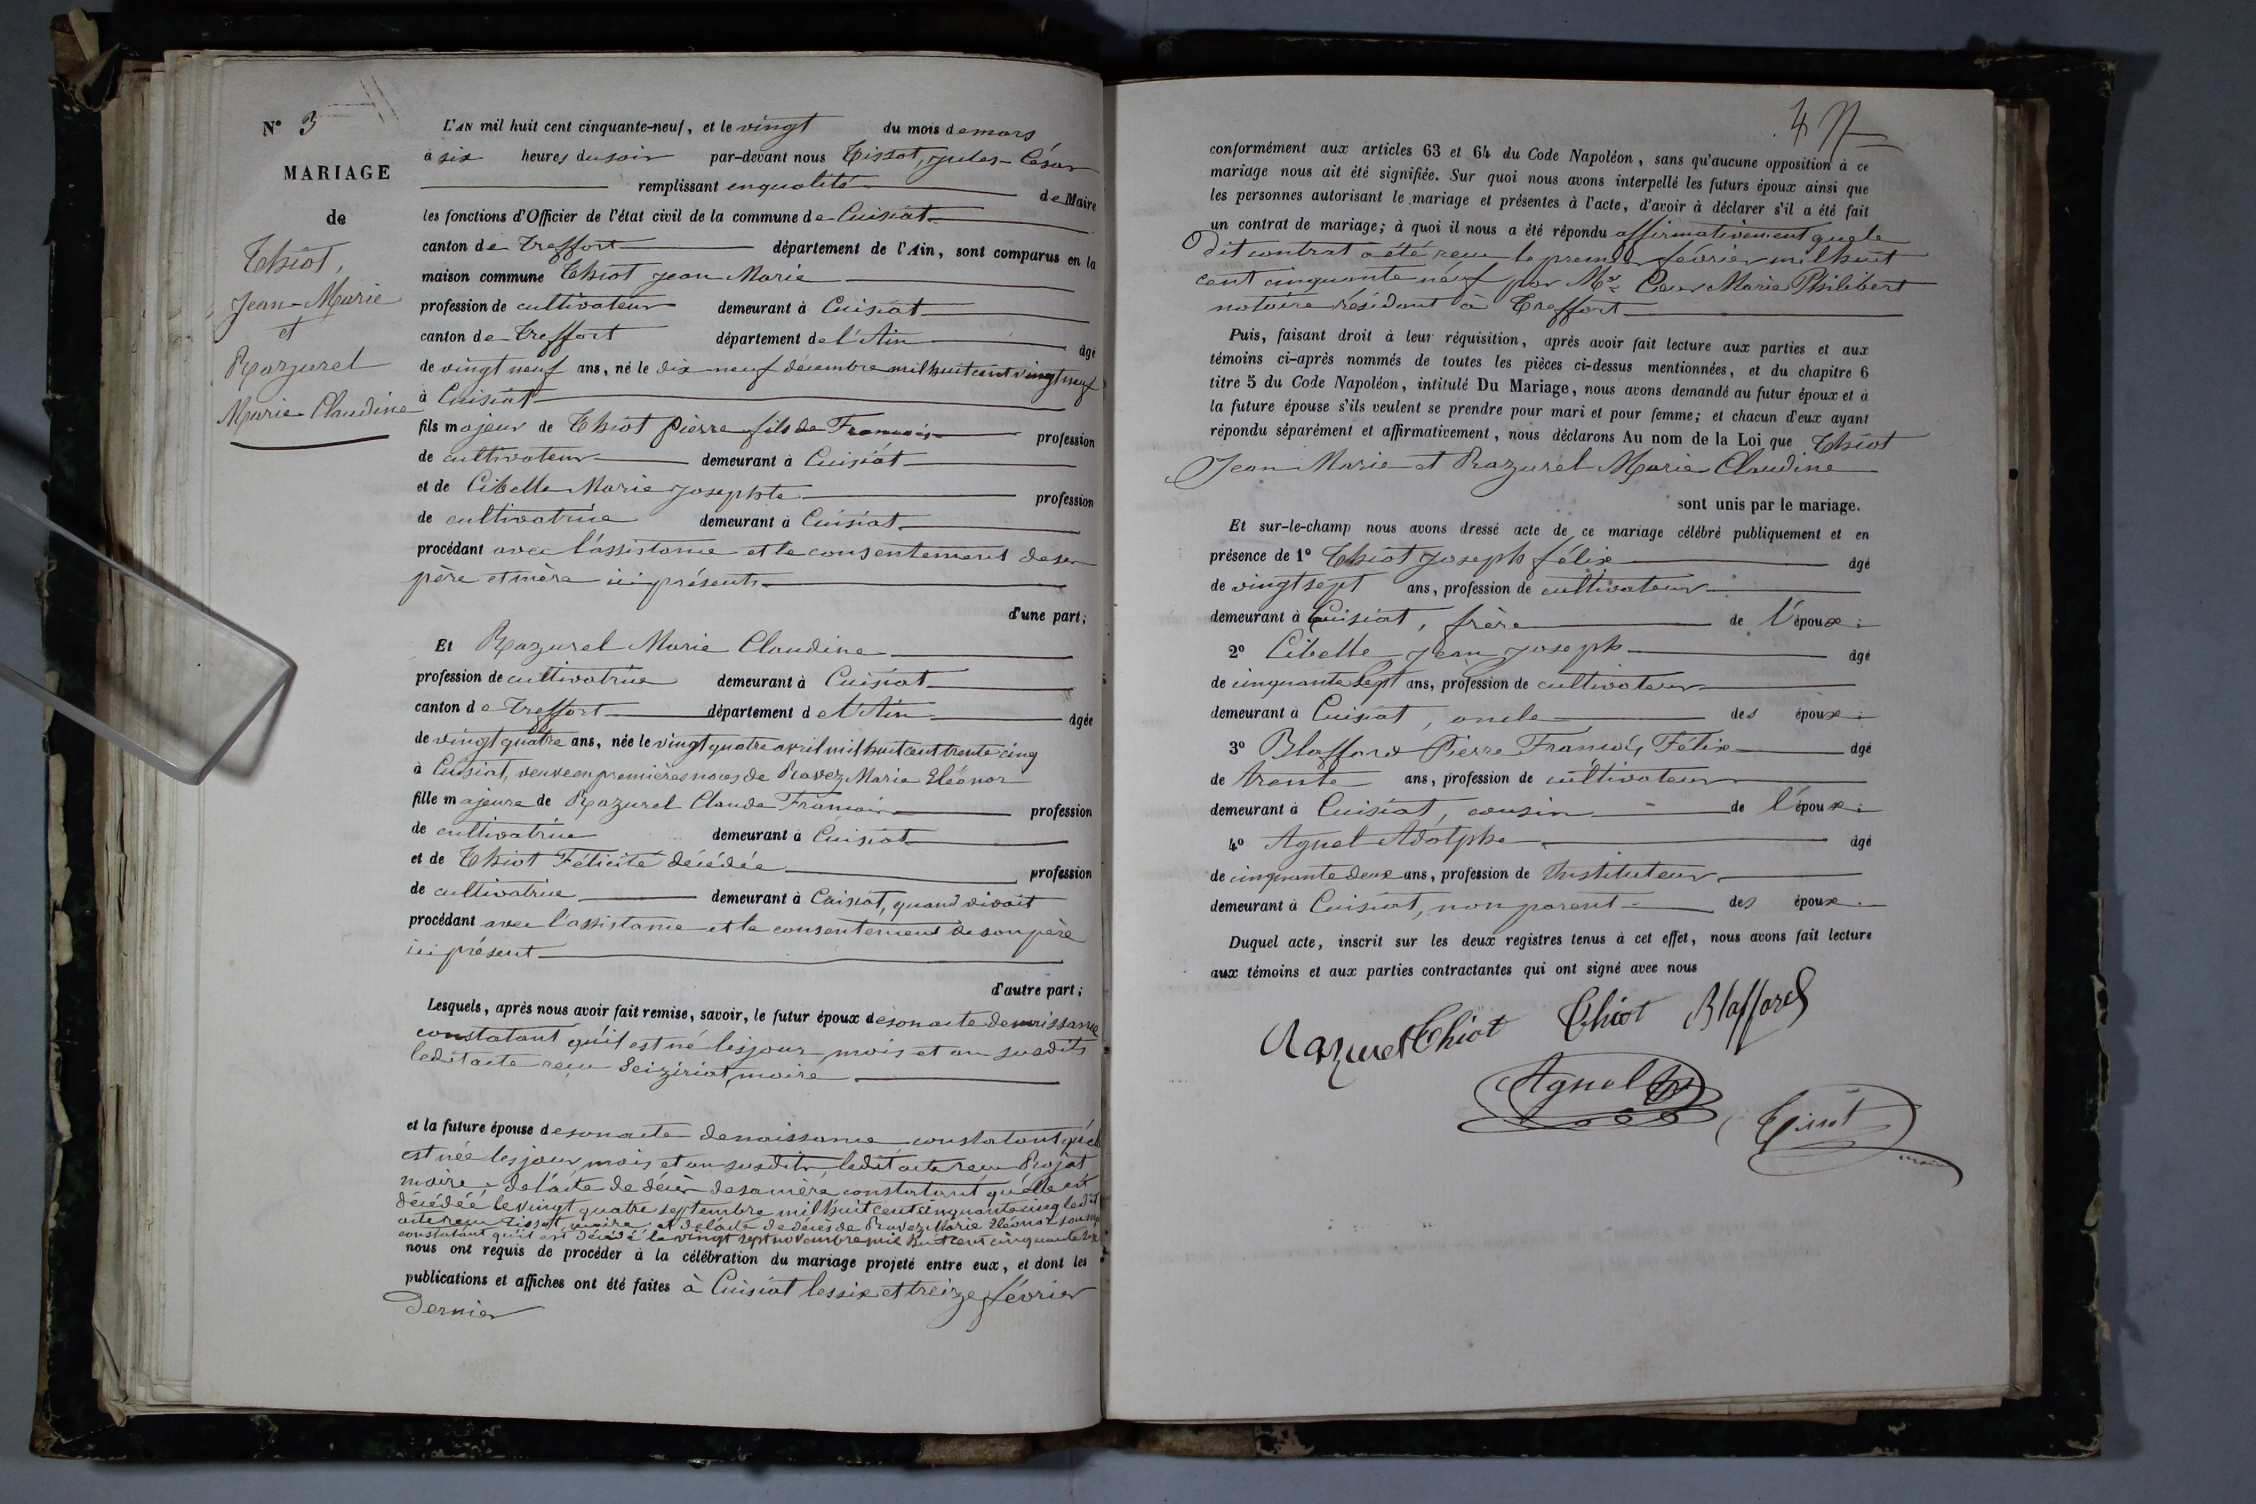 N° 3
MARIAGE
de
Thiot,
Jean-Marie
et
Razurel
Marie Claudine
L'AN mil huit cent cinquante-neuf, et le vingt du mois de mars
à six heures du soir par-devant nous Tissot, Jules-César
remplissant en qualité de Maire
les fonctions d'Officier de l'état civil de la commune de Cuisiat
canton de Treffort département de l'Ain, sont comparus en la
maison commune Thiot Jean Marie
profession de cultivateur demeurant à Cuisiat
canton de Treffort département de l'Ain âgé
de vingt neuf ans, né le dix-neuf décembre mil huit cent vingt neuf
à Cuisiat
fils majeur de Thiot Pierre fils de François profession
de cultivateur demeurant à Cuisiat
et de Cibelle Marie Josephte profession
de cultivatrice demeurant à Cuisiat
procédant avec l'assistance et le consentement de ses
père et mère ici présents
d'une part;
Et Razurel Marie Claudine
profession de cultivatrice demeurant à Cuisiat
canton de Treffort département de l'Ain âgée
de vingt quatre ans, née le vingt quatre avril mil huit cent trente cinq
à Cuisiat, veuve en premières noces de Ravez Marie Eléonor
fille majeure de Razurel Claude François profession
de cultivatrice demeurant à Cuisiat
et de Thiot Félicité décédée profession
de cultivatrice demeurant à Cuisiat, quand vivait
procédant avec l'assistance et le consentement de son père
ici présent
d'autre part;
Lesquels, après nous avoir fait remise, savoir, le futur époux de son acte de naissance
constatant qu'il est né les jour, mois et an susdits
ledit acte reçu Seiziriat, maire
et la future épouse de son acte de naissance constatant qu'elle
est née les jour, mois et an susdits, ledit acte reçu Rojat
maire; de l'acte de décès de sa mère constatant qu'elle est
décédée le vingt quatre septembre mil huit cent cinquante cinq ledit
acte reçu Tissot, maire; et de l'acte de décès de Ravez Marie Eléonor
constatant qu'il est décédé le vingt sept novembre mil huit cent cinquante
nous ont requis de procéder à la célébration du mariage projeté entre eux, et dont les
publications et affiches ont été faites à Cuisiat les six et treize février
dernier
4
conformément aux articles 63 et 64 du Code Napoléon, sans qu'aucune opposition à ce
mariage nous ait été signifiée. Sur quoi nous avons interpellé les futurs époux ainsi que
les personnes autorisant le mariage et présentes à l'acte, d'avoir à déclarer s'il a été fait
un contrat de mariage; à quoi il nous a été répondu affirmativement que le
dit contrat a été reçu le premier février mil huit
cent cinquante neuf par Mr Marie Philibert
notaire résidant à Treffort
Puis, faisant droit à leur réquisition, après avoir fait lecture aux parties et aux
témoins ci-après nommés de toutes les pièces ci-dessus mentionnées, et du chapitre 6
titre 5 du Code Napoléon, intitulé Du Mariage, nous avons demandé au futur époux et à
la future épouse s'ils veulent se prendre pour mari et pour femme; et chacun d'eux ayant
répondu séparément et affirmativement, nous déclarons Au nom de la Loi que Thiot
Jean Marie et Razurel Marie Claudine
sont unis par le mariage.
Et sur-le-champ nous avons dressé acte de ce mariage célébré publiquement et en
présence de 1° Thiot Joseph félix âgé
de vingt sept ans, profession de cultivateur
demeurant à Cuisiat, frère de l'époux.
2° Cibelle Jean Joseph âgé
de cinquante sept ans, profession de cultivateur
demeurant à Cuisiat, oncle des époux.
3° Blaffard Pierre François Félix âgé
de trente ans, profession de cultivateur
demeurant à Cuisiat, cousin de l'époux.
4° Agnel Adolphe âgé
de cinquante deux ans, profession de Instituteur
demeurant à Cuisiat, non parent des époux.
Duquel acte, inscrit sur les deux registres tenus à cet effet, nous avons fait lecture
aux témoins et aux parties contractantes qui ont signé avec nous
Razurel Thiot Thiot Blaffard
Agnel
Tissot
maire